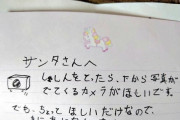 サンタさんへ
しゃしんをとったら、下から写真が
でてくるカメラがほしいです。
でも、ちょっとほしいだけなので、